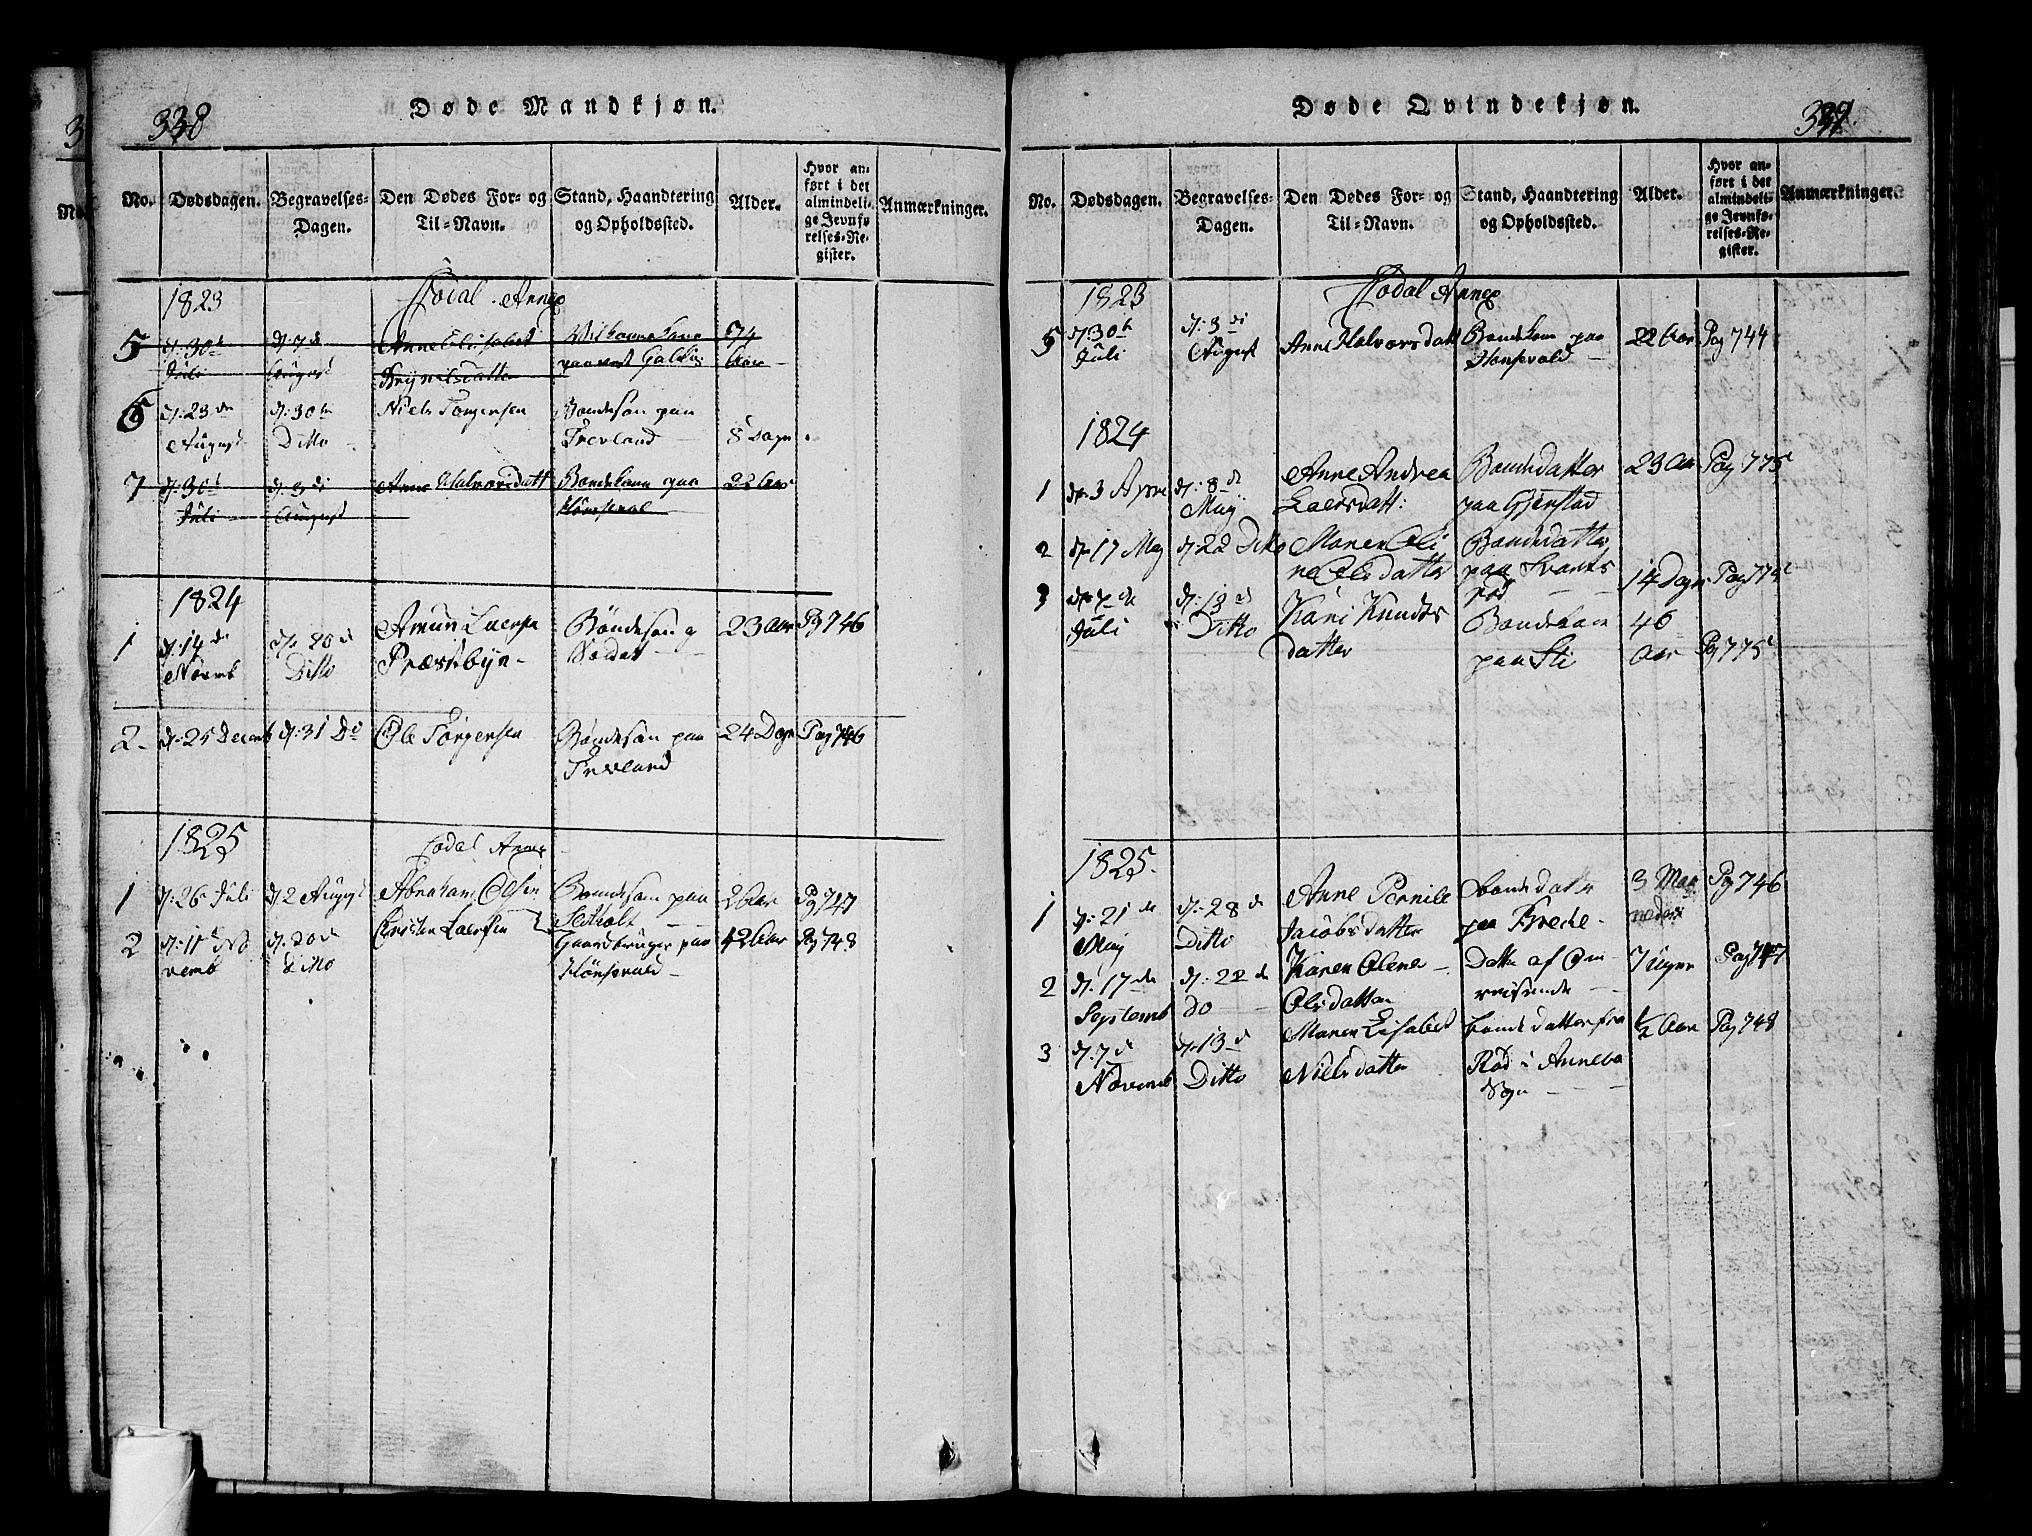 338
Døde Mandkjøn.
No.
Dødsdagen.
Begravelses-
Dagen.
Den Dødes For- og
Til-Navn.
Stand, Haandtering
og Opholdssted.
Alder.
Hvor an-
ført i det
almindeli-
ge Jevnfø-
relses-Re-
gister.
Anmærkninger.
1823
Hodal Annex
5
d: 30
Juli
d: 7de
August
Anne Elisabet
74
Aar
6
d: 23 de
August
d: 30te
Ditto
Niels Torgersen
Bondesøn paa
Trevland
8 Dage
7
d: 30
Juli
d: 3di
August
Anne Halvorsdatt
Bondekone paa
22 Aar
1824
1
d: 14 de
Novmb
d: 20 d
Ditto
Amun Laersen
Præstebyn
Bondesøn og
Soldat
23 Aar
Pg 746
2
d: 25 Decemb
d: 31 Do
Ole Torgersen
Bondesøn paa
Trevland
24 Dage
Pag 746
1825
Hodal Annex
1
d: 26 Juli
d: 2 August
Abraham Olsen
Bondesøn paa
2 Aar
Pg 747
2
d: 11 No
vemb
d: 20 d
Ditto
Christen Laersen
Gaardbruger paa
Hønsvald
42 Aar
Pg 748
Døde Qvindekjøn.
339.
No.
Dødsdagen.
Begravelses-
Dagen.
Den Dødes For- og
Til-Navn.
Stand, Haandtering
og Opholdssted.
Alder.
Hvor an-
ført i det
almindeli-
ge Jevnfø-
relses-Re-
gister.
Anmærkninger.
1823
Hodal Annex
5
d: 30te
Juli
d: 3 di
August
Anne Halvorsdatt
Bondekone paa
Hønsvald
22 Aar
Pag 744
1824
1
d: 3 Apr
d: 8 de
May
Anne Andrea
Laersdatt:
Bondedatter
paa Gjerstad
23 Aar
Pag 775
2
d: 17 May
d: 22 Ditto
Maren Oli
ne Olsdatter
Bondedatter
paa Svarts
rød
14 Dage
Pag 775
3
d: 7 de
Juli
d: 13 d
Ditto
Kari Knuds
datter
Bondekone
paa Sti
46
Aar
Pg 775
1825.
1
d: 21 de
May
d: 28 d
Ditto
Anne Pernille
Jacobsdatter
bondedatter
paa Brede
3 Maa
neder
Pg 746
2
d: 17 de
Septemb
d: 22 d
do
Karen Olene
Olsdatter
Datter af Om
reisende
7 Uger
Pag 747
3
d: 7 d
Novemb
d: 13 d
Ditto
Maren Lisabet
Nielsdatter
bondedatter fra
Rød i Annebo
Sogn
½ Aar
Pag 748